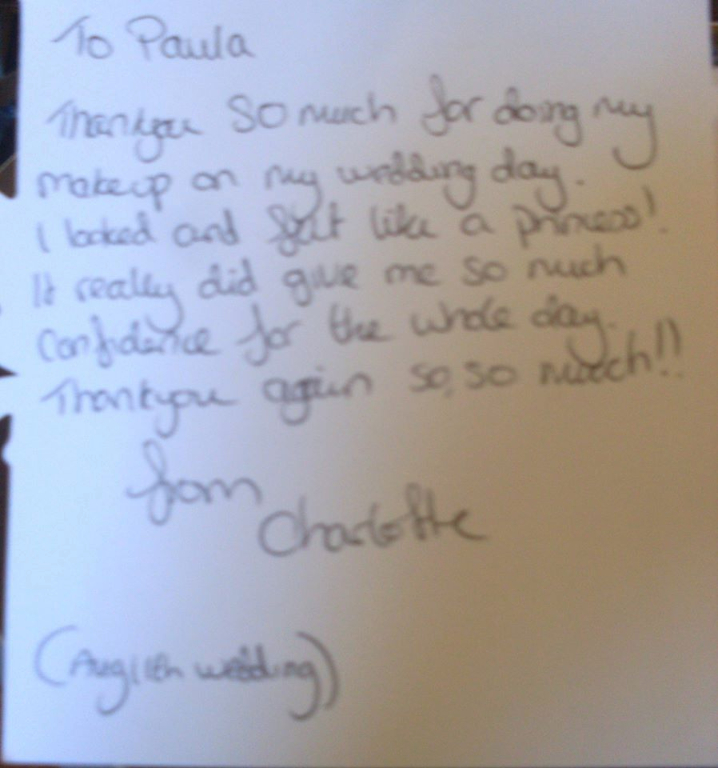 To Paula
Thankyou so much for doing my
makeup on my wedding day.
I looked and felt like a princess!
It really did give me so much
confidence for the whole day.
Thankyou again so, so much!!
from
Charlotte
(Aug 11th wedding)